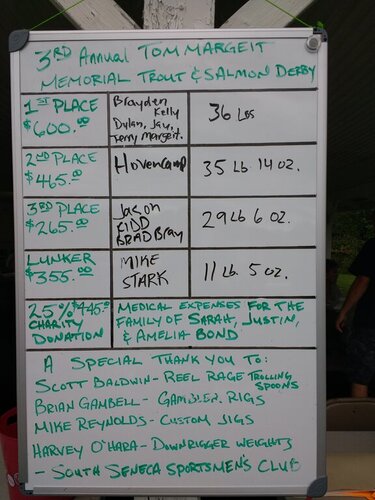 3RD Annual TOM MARGEIT
MEMORIAL TROUT & SALMON DERBY
1ST PLACE
$600.00
Brayden
Kelly
Dylan, Jay,
Terry Margeit.
36 Lbs
2ND PLACE
$465.00
HovenCamp
35 Lb. 14 oz.
3RD PLACE
$265.00
Jason
KIDD
BRAD Bray
29 Lb 6 oz.
LUNKER
$355.00
MIKE
STARK
11 Lb. 5 oz.
25% $445.00
CHARITY
DONATION
MEDICAL EXPENSES FOR THE
FAMILY OF SARAH, JUSTIN,
& AMELIA BOND
A SPECIAL THANK YOU TO:
SCOTT BALDWIN - REEL RAGE TROLLING
SPOONS
BRIAN GAMBELL - GAMBLER RIGS
MIKE REYNOLDS - CUSTOM JIGS
HARVEY O'HARA - DOWNRIGGER WEIGHTS
- SOUTH SENECA SPORTSMEN'S CLUB